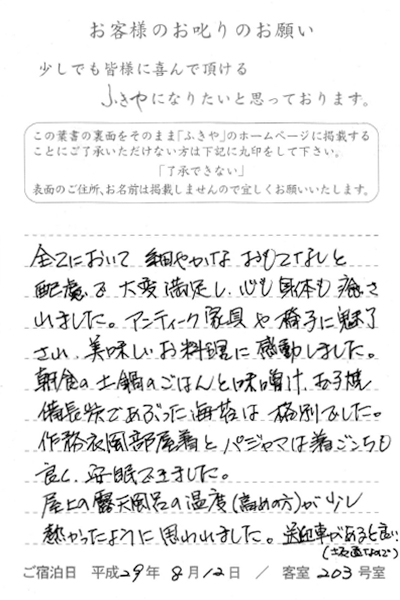 お客様のお叱りのお願い
少しでも皆様に喜んで頂ける
ふきやになりたいと思っております。
この葉書の裏面をそのまま「ふきや」のホームページに掲載する
ことにご了承いただけない方は下記に丸印をして下さい。
「了承できない」
表面のご住所、お名前は掲載しませんので宜しくお願いいたします。
全てにおいて 細やかな おもてなしと
配慮で 大変満足し、心も身体も 癒さ
れました。アンティーク家具や椅子に魅了
され、美味しいお料理に 感動しました。
朝食の土鍋のごはんと味噌汁、玉子焼
備長炭であぶった海苔は 格別でした。
作務衣風部屋着とパジャマは着ごこちも
良く、安眠できました。
屋上の露天風呂の温度(高めの方)が少し
熱かったように 思われました。送迎車があると良い
(坂道なので)
ご宿泊日 平成29年 8月12日 / 客室 203号室